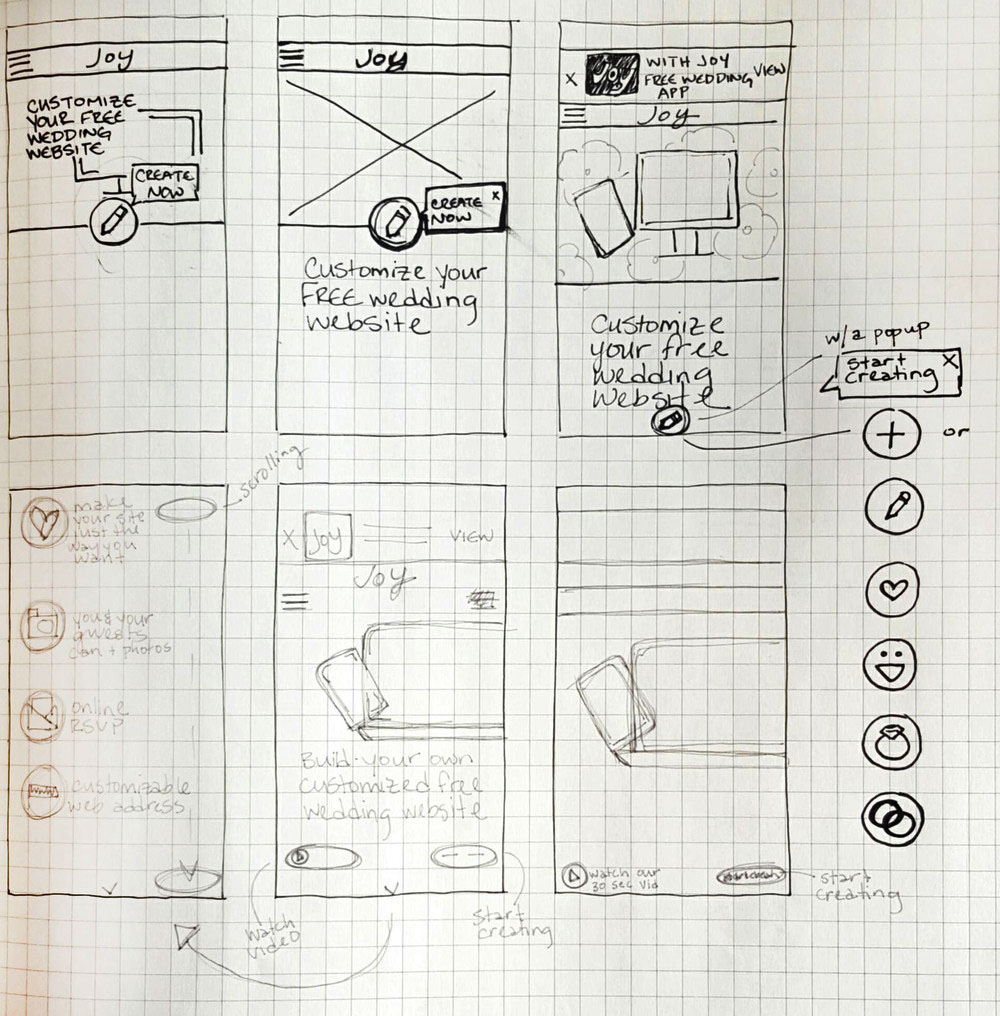 Joy
CUSTOMIZE
YOUR FREE
WEDDING
WEBSITE
CREATE
NOW
Joy
CREATE
NOW
X
Customize your
FREE wedding
website
X
JOY
WITH JOY
FREE WEDDING
APP
VIEW
Joy
Customize
your free
wedding
website
w/a popup
start
creating
X
or
scrolling
make
your site
just the
way you
want
you & your
guests
can + photos
online
RSVP
customizable
web address
X
JOY
VIEW
Joy
Build your own
customized free
wedding website
watch
video
start
creating
watch our
30 sec vid
start
creating